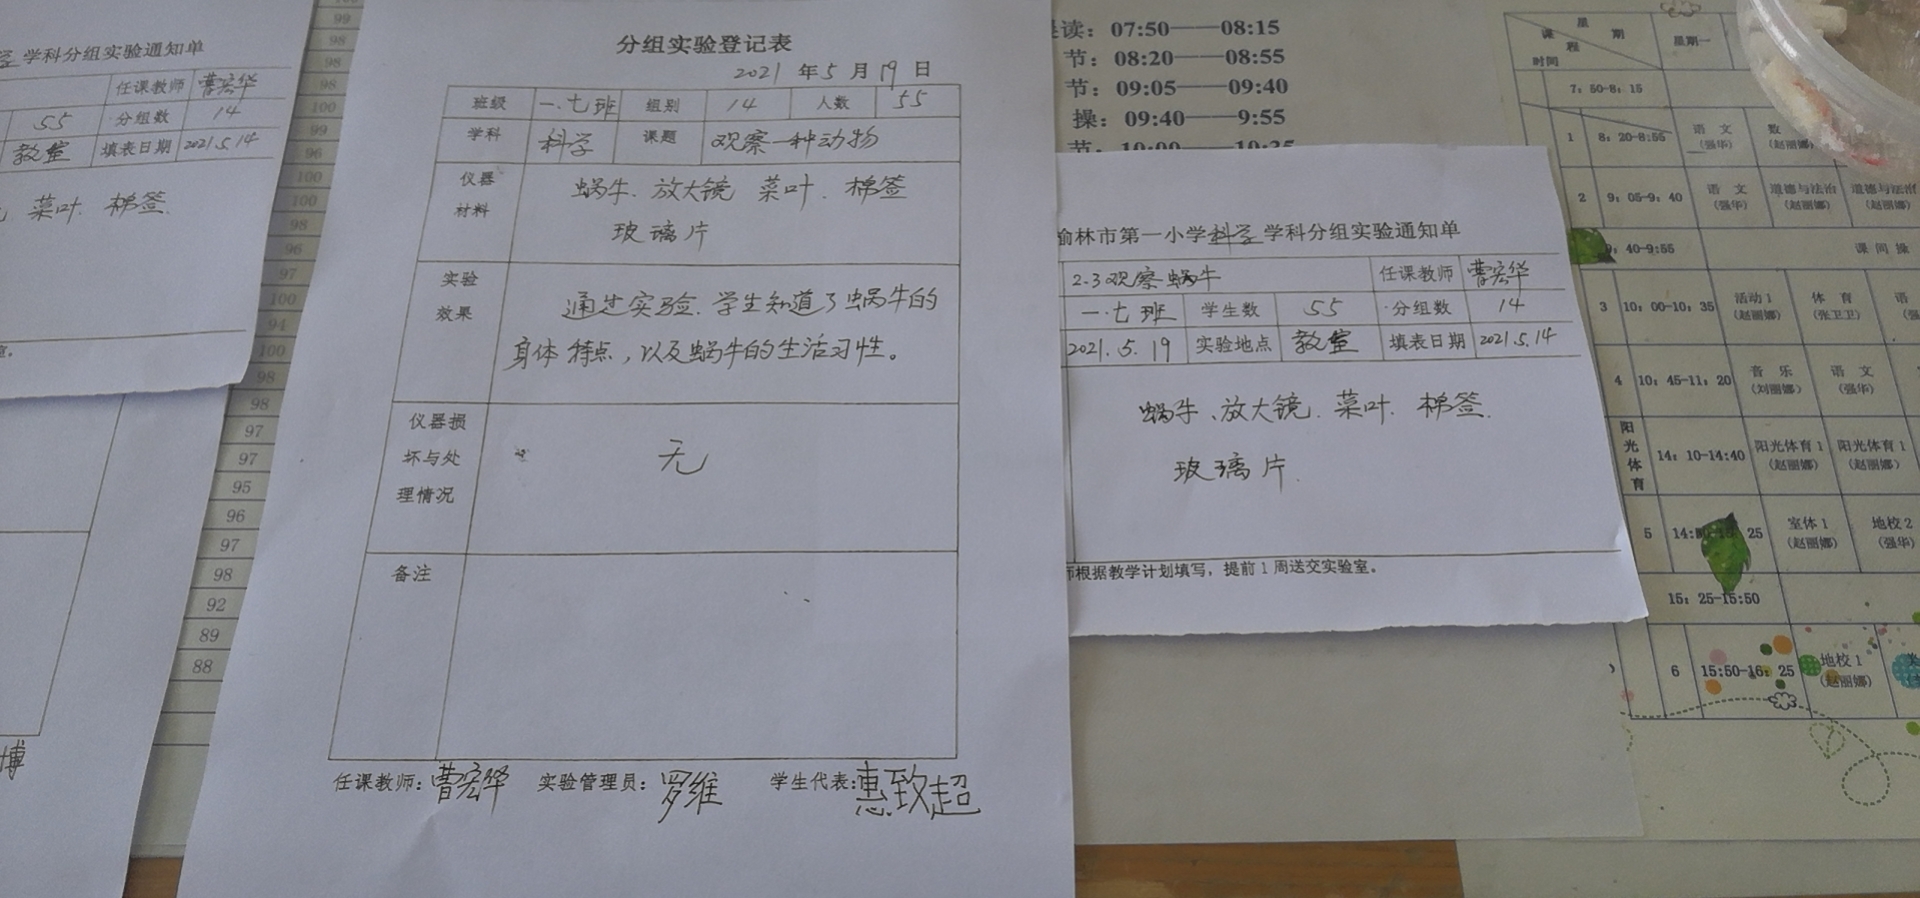 学科分组实验通知单
任课教师 曹宏华
55 分组数 14
教室 填表日期 2021.5.14
菜叶. 棉签.
分组实验登记表
2021 年 5 月 19 日
班级 一.七班 组别 14 人数 55
学科 科学 课题 观察一种动物
仪器材料 蜗牛、放大镜 菜叶. 棉签
玻璃片
实验效果 通过实验.学生知道了蜗牛的
身体特点，以及蜗牛的生活习性。
仪器损坏与处理情况 无
备注
任课教师：曹宏华 实验管理员：罗维 学生代表：惠致超
07:50——08:15
节：08:20——08:55
节：09:05——09:40
操：09:40——9:55
节：10:00——10:35
榆林市第一小学科学学科分组实验通知单
2.3观察蜗牛 任课教师 曹宏华
一.七班 学生数 55 分组数 14
2021.5.19 实验地点 教室 填表日期 2021.5.14
蜗牛、放大镜. 菜叶. 棉签.
玻璃片.
师根据教学计划填写，提前1周送交实验室。
星期 课程 时间 星期一
7：50-8：15
1 8：20-8:55 语文（强华） 数（赵丽娜）
2 9：05-9：40 语文（强华） 道德与法治（赵丽娜） 道德与法治（赵丽娜）
9：40-9:55 课间操
3 10：00-10：35 活动1（赵丽娜） 体育（张卫卫） 语
4 10：45-11：20 音乐（刘丽娜） 语文（强华）
阳光体育 14：10-14:40 阳光体育1（赵丽娜） 阳光体育1（赵丽娜）
5 25 室体1（赵丽娜） 地校2（强华）
15：25-15:50
6 15:50-16：25 地校1（赵丽娜）
99
98
98
98
100
99
96
100
100
98
96
97
100
94
100
98
98
97
97
95
96
97
98
92
89
88
博